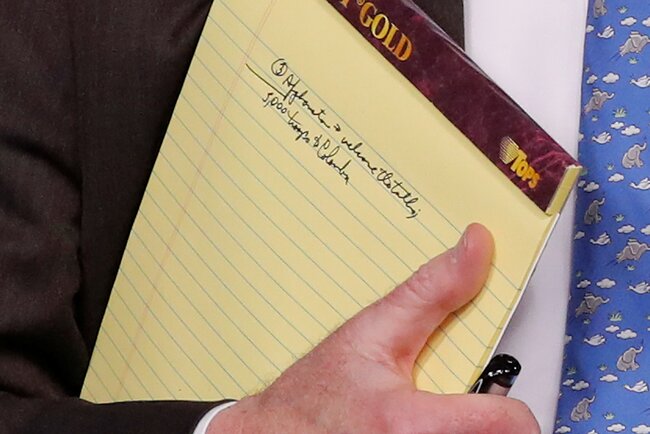 GOLD
① Afghanistan → welcome the talks;
5,000 troops to Colombia
TOPS